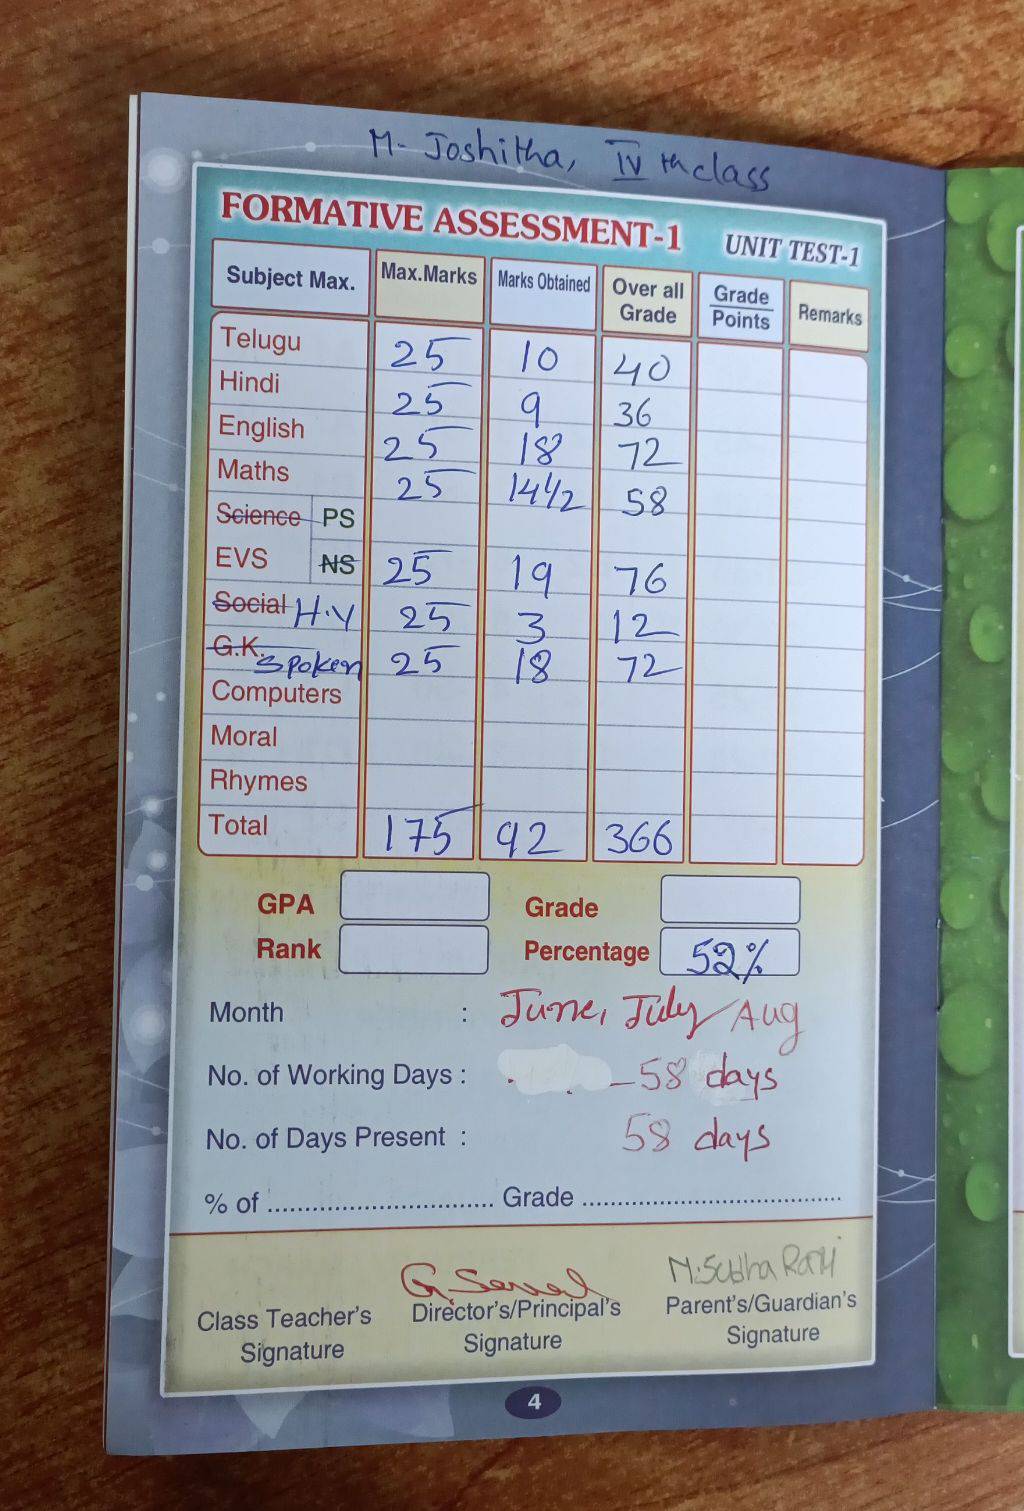 M. Joshitha, IV th class
FORMATIVE ASSESSMENT-1 UNIT TEST-1
Subject Max. Max.Marks Marks Obtained Over all Grade Grade Points Remarks
Telugu 25 10 40
Hindi 25 9 36
English 25 18 72
Maths 25 14 1/2 58
Science PS
EVS NS 25 19 76
Social H.Y 25 3 12
G.K. Spoken 25 18 72
Computers
Moral
Rhymes
Total 175 92 366
GPA Grade
Rank Percentage 52%
Month : June, July Aug
No. of Working Days : 58 days
No. of Days Present : 58 days
% of .............................. Grade ......................................
M. Subha Rani
Class Teacher's Signature Director's/Principal's Signature Parent's/Guardian's Signature
4